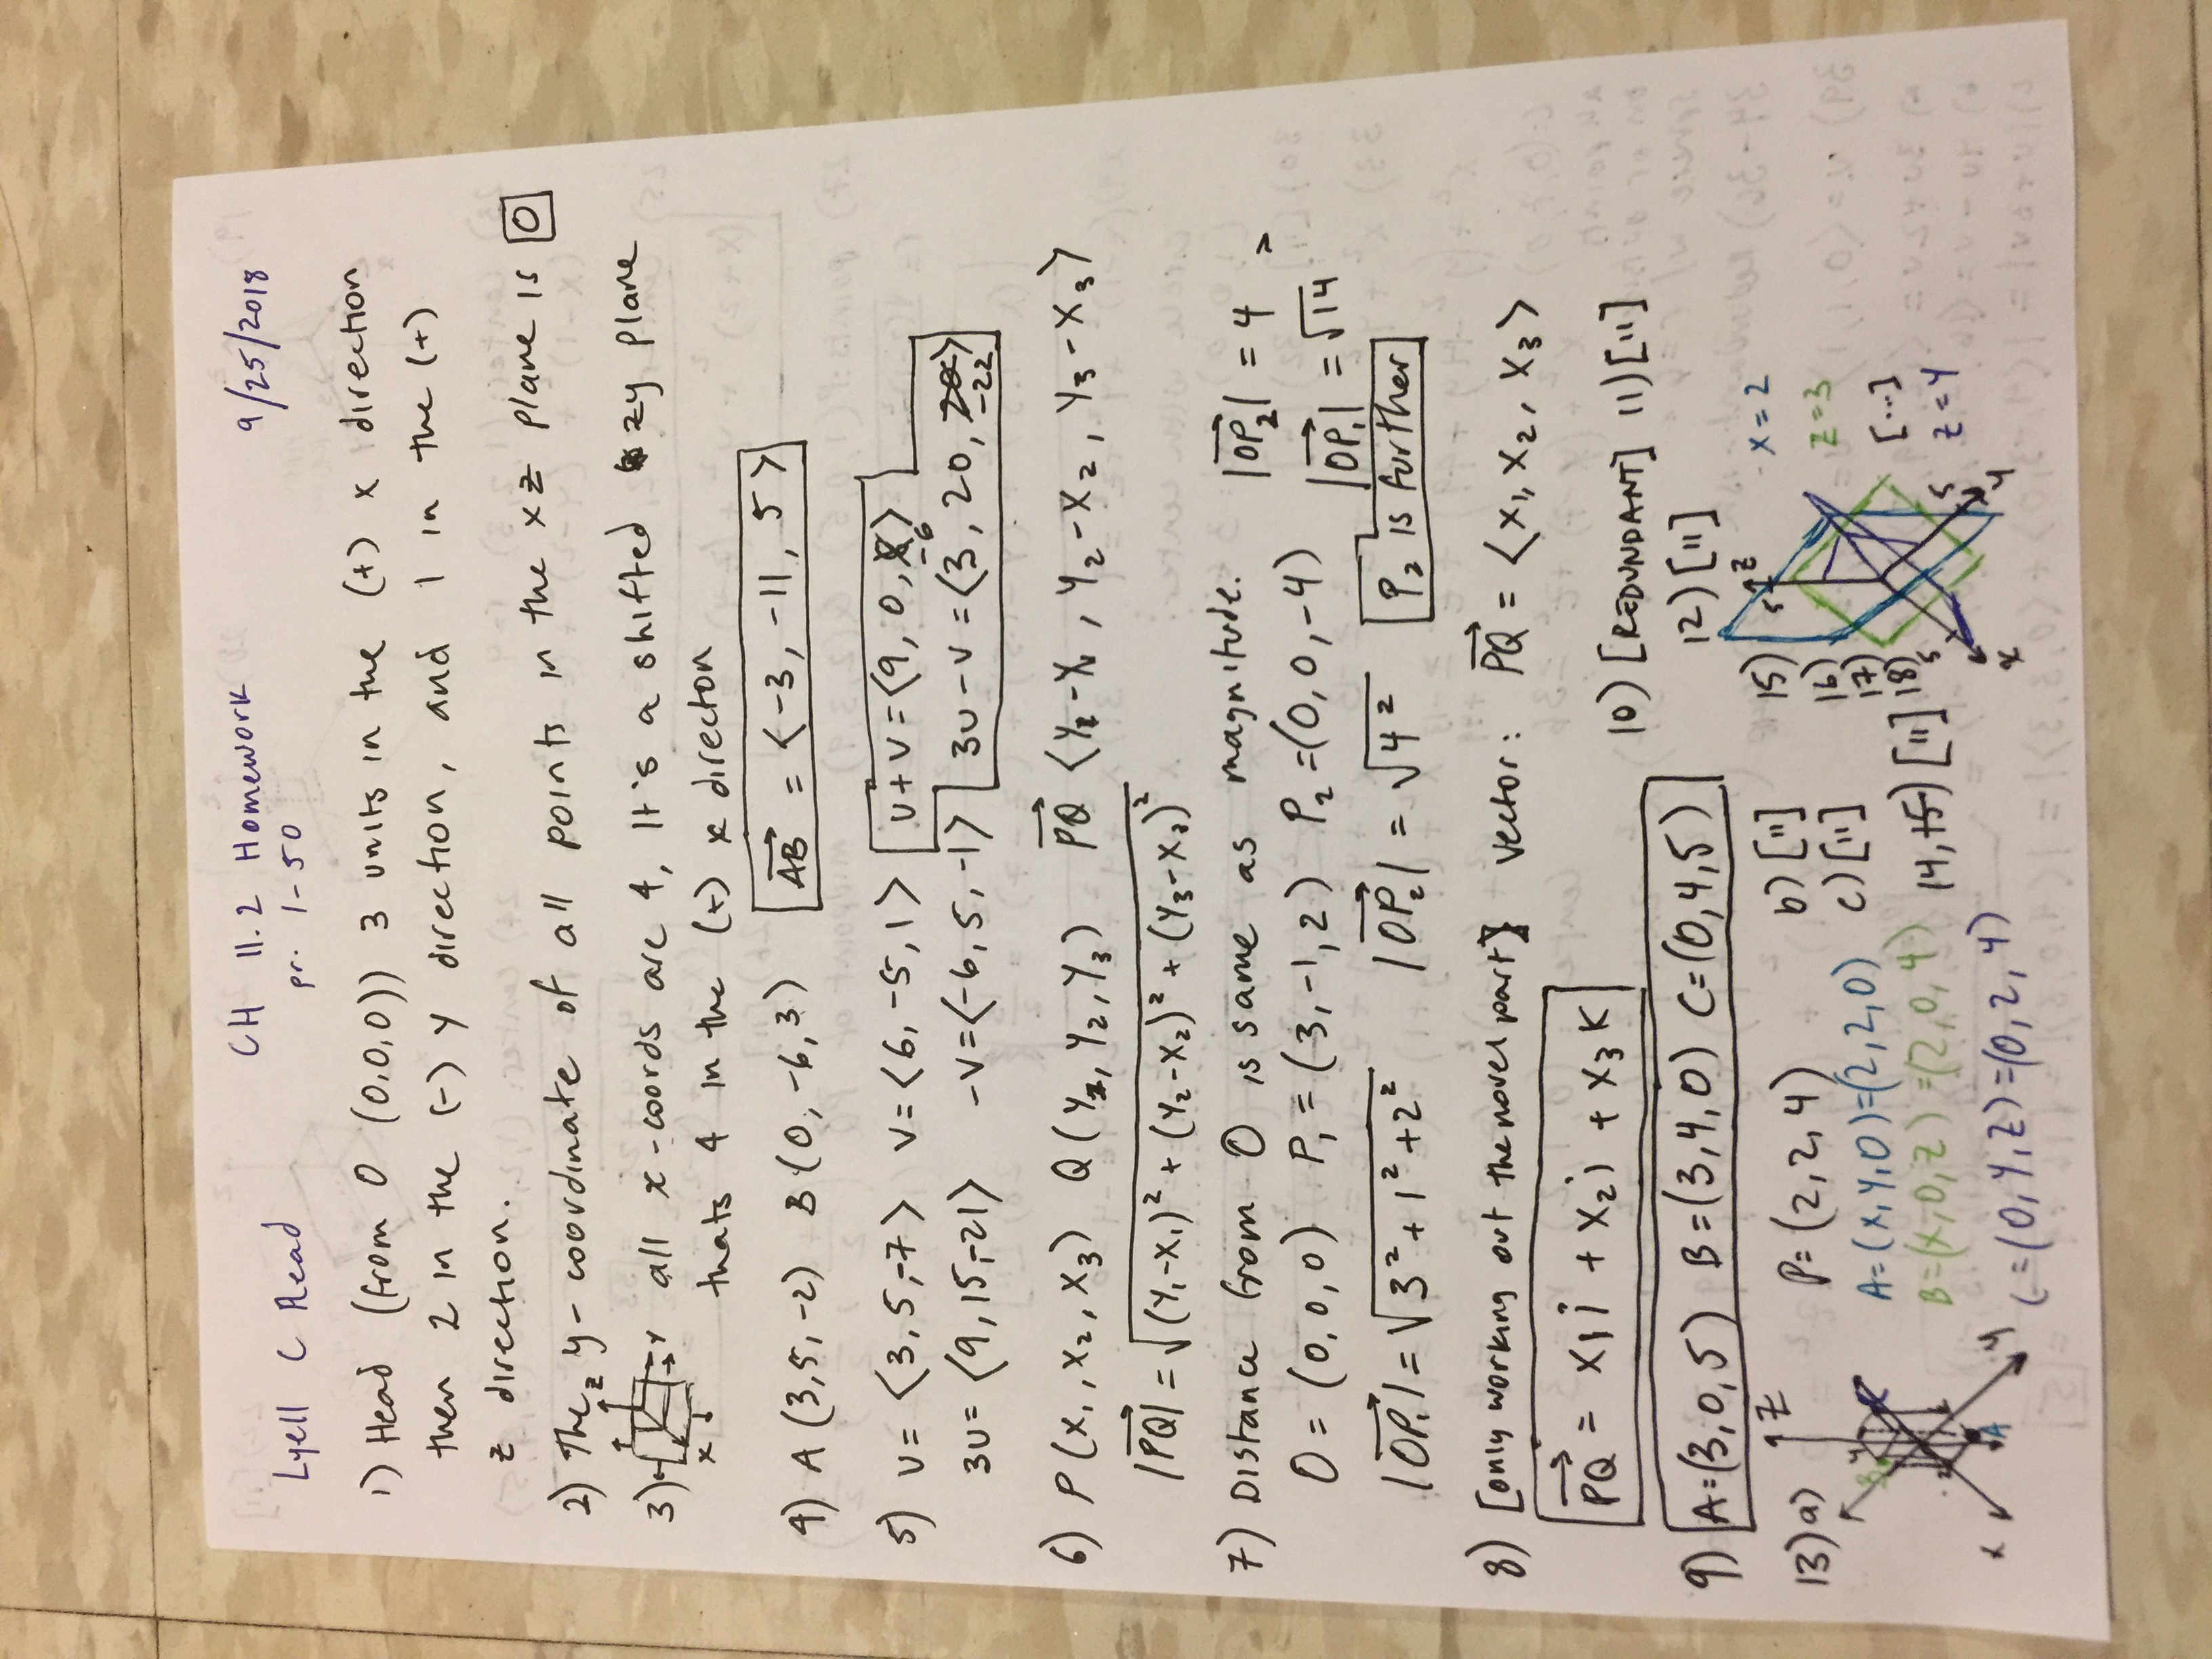 CH 11.2 Homework
9/25/2018
Lyell C Read
pr. 1-50
1) Head (from O (0,0,0)) 3 units in the (+) x direction
then 2 in the (-) y direction, and 1 in the (+)
z direction.
2) The y-coordinate of all points in the xz plane is 0
3) z y x all x-coords are 4, It's a shifted zy plane
thats 4 in the (+) x directon
4) A (3,5,-2) B (0,-6,3) AB→ = <-3, -11, 5>
5) u = <3,5,-7> v = <6,-5,1> u+v = <9, 0, -6>
3u = <9,15,-21> -v = <-6,5,-1> 3u-v = <3, 20, -22>
6) P(x₁, x₂, x₃) Q(y₁, y₂, y₃) PQ→ <y₁-x₁, y₂-x₂, y₃-x₃>
|PQ→| = √((y₁-x₁)² + (y₂-x₂)² + (y₃-x₃)²)
7) Distance from O is same as magnitude. |OP₂→| = 4 >
O = (0,0,0) P₁ = (3,-1,2) P₂ = (0,0,-4) |OP₁→| = √14
|OP₁→| = √(3² + 1² + 2²) |OP₂→| = √(4²) P₂ is further
8) [only working out the novel part] vector: PQ→ = <x₁, x₂, x₃>
PQ→ = x₁i + x₂j + x₃k
10) [REDUNDANT] 11) ["]
9) A=(3,0,5) B=(3,4,0) C=(0,4,5)
12) ["]
13) a) z P = (2,2,4) b) ["]
A = (x,y,0) = (2,2,0) c) ["]
B = (x,0,z) = (2,0,4) 14,15) ["]
C = (0,y,z) = (0,2,4)
B 4 C 2 2 A x y
15) z 5 x=2
16) z=3
17) [...]
18) 5 5 z=y
x y